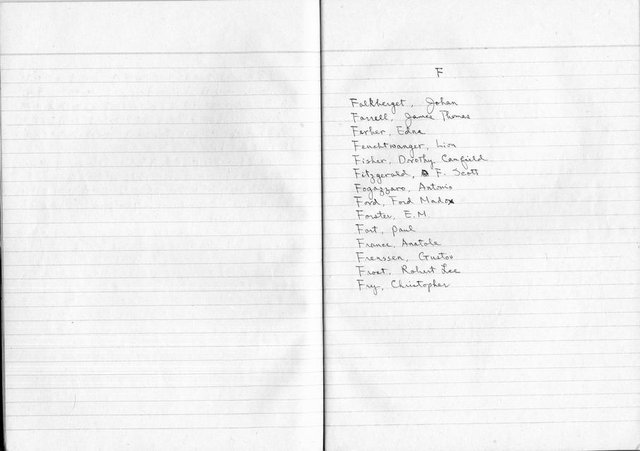 F
Falkberget, Johan
Farrell, James Thomas
Ferber, Edna
Feuchtwanger, Lion
Fisher, Dorothy Canfield
Fitzgerald, F. Scott
Fogazzaro, Antonio
Ford, Ford Madox
Forster, E.M.
Fort, Paul
France, Anatole
Frenssen, Gustav
Frost, Robert Lee
Fry, Christopher